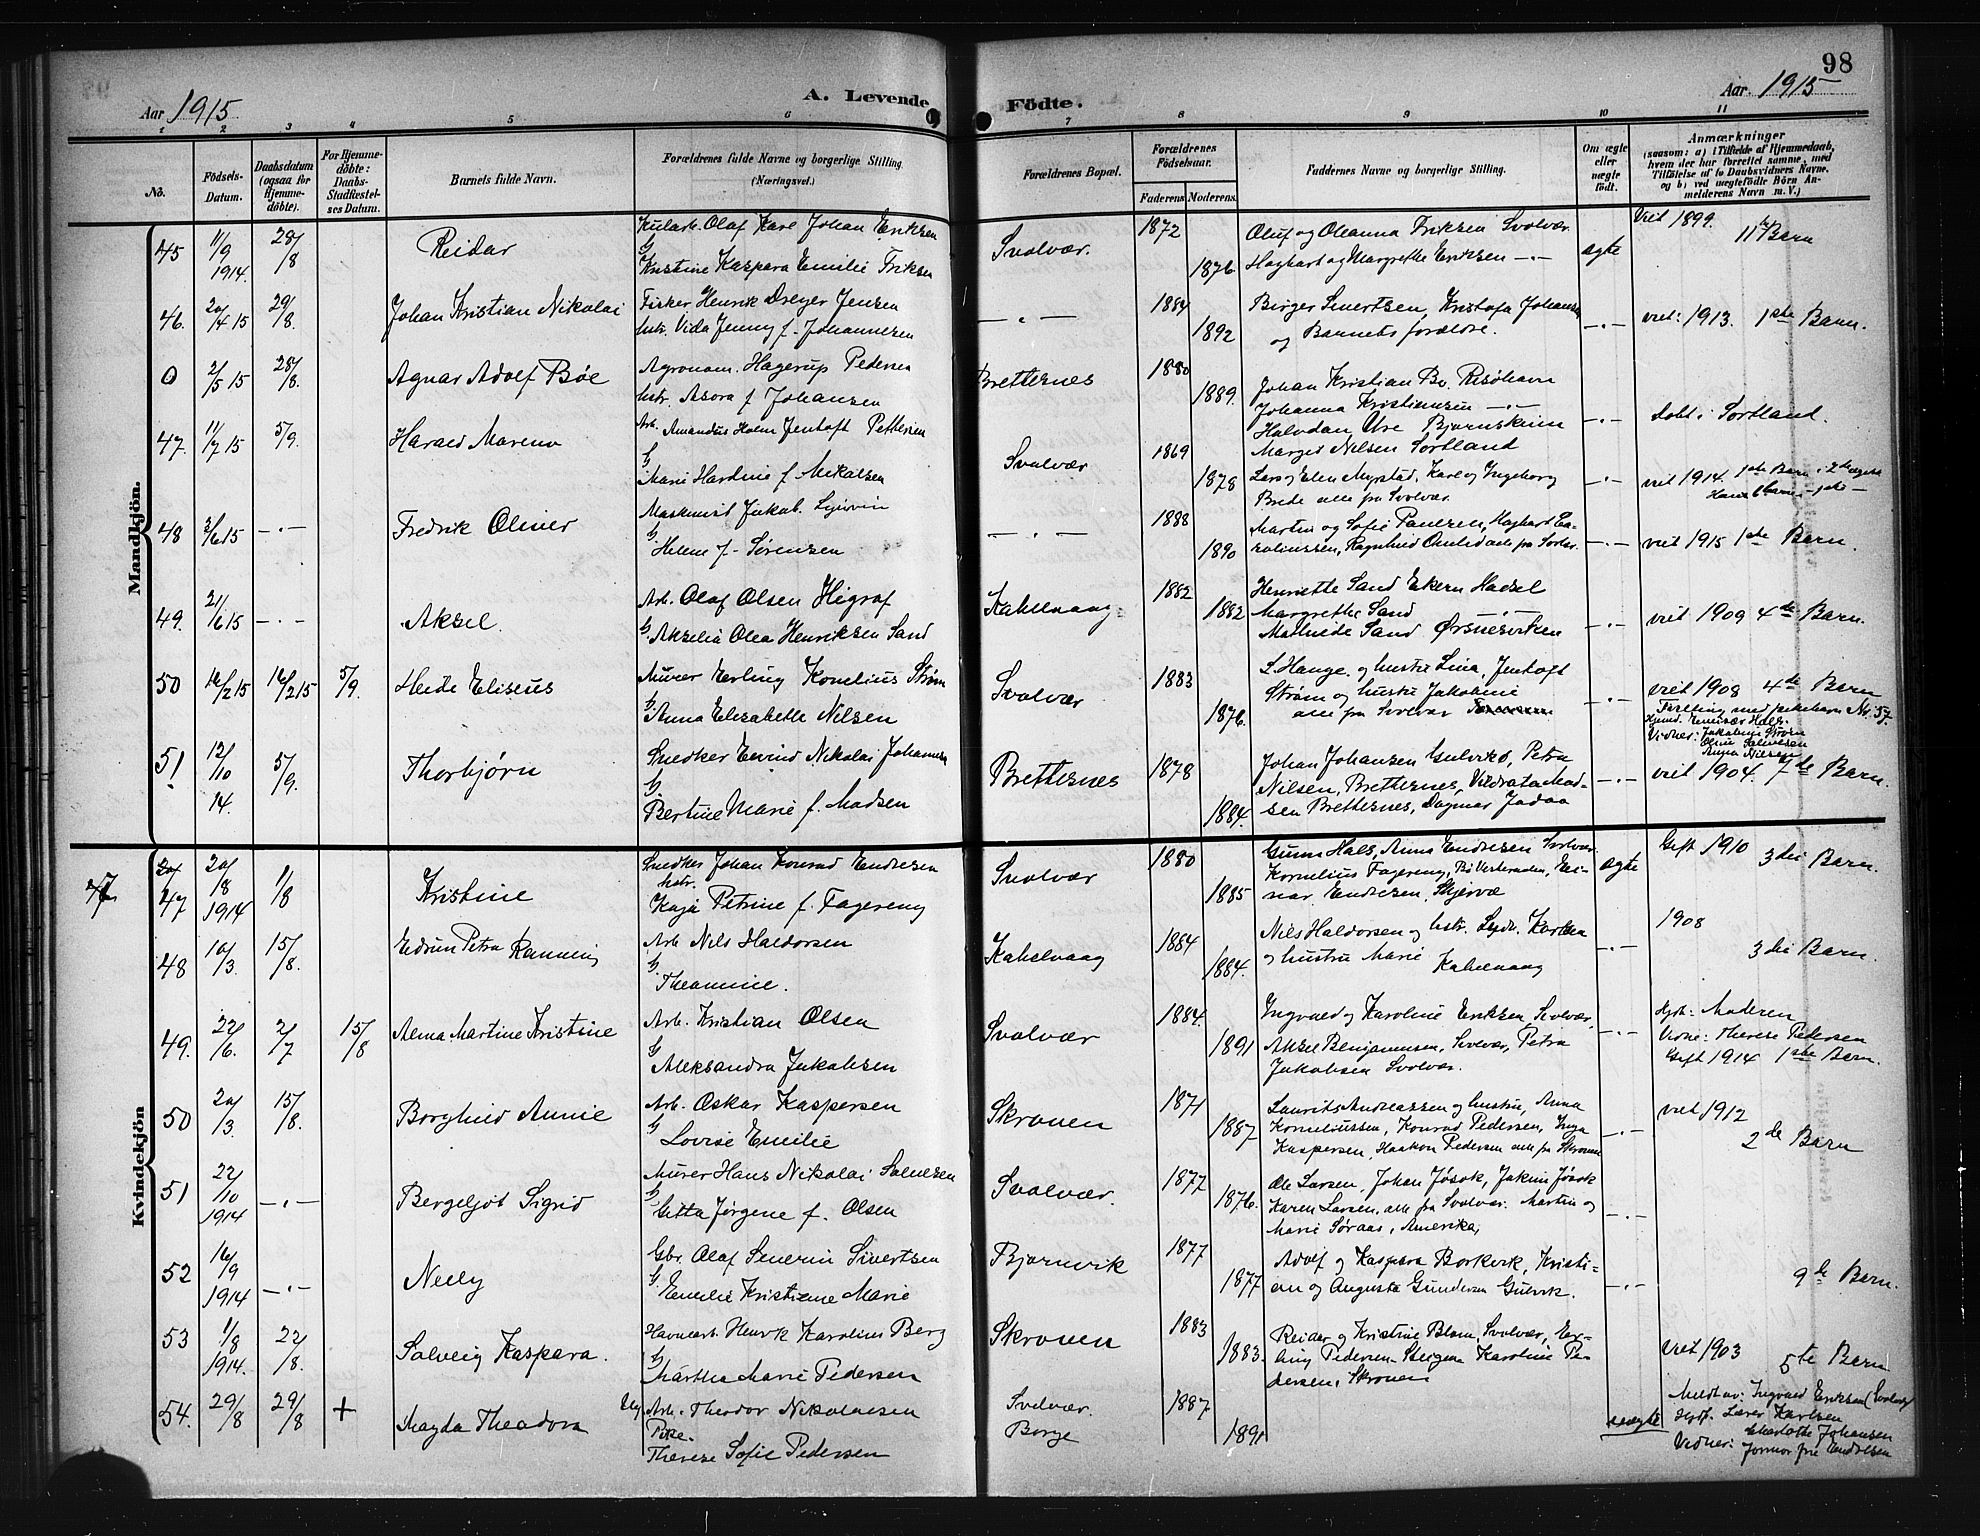 98
Aar 1915
A. Levende
Födte.
Aar 1915
1 2 3 4 5 6 7 8 9 10 11
No.
Födsels-
Datum.
Daabsdatum
(ogsaa for
Hjemme-
döbte).
For Hjemme-
döbte:
Daabs-
Stadfæstel-
ses Datum.
Barnets fulde Navn.
Forældrenes fulde Navne og borgerlige Stilling.
(Næringsvei.)
Forældrenes Bopæl.
Forældrenes
Födselsaar.
Faderens
Moderens.
Faddernes Navne og borgerlige Stilling.
Om ægte
eller
uægte
födt.
Anmærkninger
(saasom: a) i Tilfælde af Hjemmedaab,
hvem der har forrettet samme, med
Tilföielse af to Daabsvidners Navne,
og b) ved uægtefödte Börn An-
melderens Navn m. V.)
Mandkjön.
45
11/9
1914.
28/8
Reidar
Olaf Karl Johan Eriksen
G
Kristine Kaspara Emilie Eriksen
Svolvær.
1872
1876
Oluf og Oleanna Eriksen Svolvær
Haghart og Margrethe Eriksen —"—
ægte
viet 1899.
11te Barn
46.
20/4 15
29/8.
Johan Kristian Nikolai
Fisker Henrik Dreyer Jensen
hstr. Vida Jenny f. Johannesen
— " —
1884
1892
Birger Sivertsen, Kristofa Johansen
og Barnets forældre.
—"—
viet: 1913. 1ste Barn.
0
2/5 15
28/8.
Agnar Adolf Böe
Agronom. Hagerup Pedersen
hstr. Asora f Johansen
Brettesnes
1880
1889.
Johan Kristian Bö. Risöhavn
Johanna Kristiansen —"—
Halvdan Öre Bjørnskinn
Margit Nilsen Sortland
—"—
döbt i Sortland.
47.
11/7 15
5/9.
Harald Mareno
Arb. Amandus Holm Jentoft Pettersen
G
Marie Hardine f. Mikalsen
Svolvær
1869
1878
Lars og Elen Myrstad, Karl og Ingeborg
Brede alle fra Svolvær.
—"—
viet 1914. 1ste Barn i 2det ægtesk
48
3/6 15
—"—
Fredrik Oliver
Maskinist Jakob
G
Helene f. Sørensen
— " —
1888
1890
Martin og Sofie Paulsen, Haghart Ca-
rolinssen, Ragnhild
—"—
viet 1915 1ste Barn.
49.
21/6 15
—"—
Aksel.
Arb. Olaf Olsen Higraf
G. Akselia Olea Henriksen Sand
Kabelvaag
1882
1882
Henriette Sand Ekern Hadsel
Margrethe Sand —"—
Mathilde Sand Ørsnesvirken
—"—
viet 1909 4de Barn.
50
16/2 15
16/2 15
5/9.
Heide Eliseus
Murer Erling Kornelius Strøm
G. Anna Elisabeth Nilsen
Svolvær
1883
1876.
S. Hauge. og hustr Lina, Jentoft
Strøm og hustr Jakobine
alle fra Svolvær
—"—
viet 1908 4de Barn
Tvilling med pikebarn No 57.
Vidner: Jakobine Strøm
Anna Nilsen
51
12/10
14.
5/9.
Thorbjørn
Snedker Eivind Nikolai Johansen
G.
Bertine Marie f. Madsen
Brettesnes
1878
1884.
Johan Johansen Gulvikø, Petra
Nilsen, Brettesnes, Mad-
sen Brettesnes, Dagmar
—"—
viet 1904. 7de Barn.
Kvindekjön
47
47
20/8
1914
1/8
Kristine
Snedker Johan Konrad Endresen
hstr.
Kaja Petrine f. Fagereng
Svolvær
1880
1885
Gunn Hals, Anna Endresen Svolvær
Kornelius Fagereng, Bö Vesteraalen, Ei-
nar Endresen, Skjervø
ægte
Gift 1910 3die Barn.
48
10/3.
15/8.
Edrun Petra
Arb Nils Haldorsen
G.
Theamine.
Kabelvaag
1884
1884.
Nils Haldorsen og hstr.
og hustru Marie Kabelvaag
—"—
1908
3die Barn.
49.
22/6.
2/7
15/8
Alma Martine Kristine
Arb. Kristian Olsen
G
Aleksandra Jakobsen
Svolvær
1884.
1891
Ingvald og Karoline Eriksen Svolvær.
Aksel Benjaminsen, Svolvær, Petra
Jakobsen Svolvær.
—"—
Hjdt: Moderen
Vidne: Therese Pedersen
Gift 1914 1ste Barn.
50
20/3.
15/8.
Borghild Annie
Arb. Oskar Kaspersen
G
Lovise Emilie
Skroven
1871
1887
Laurits Andreassen og hustru, Anna
Korneliussen, Konrad Pedersen, Inga
Kaspersen, Haakon Pedersen alle fra Skroven
—"—
viet 1912
2de Barn
51
22/10
1914
—"—
Bergeljot Sigrid
Murer Hans Nikolai Salvesen
G
Gitta Jørgene f. Olsen
Svolvær.
1877
1876.
Ole Larsen, Johan Jøsok, Jakim Jøsok
Karen Larsen, alle fra Svolvær. Martin og
Marie Søraas, Amerika,
—"—
52
16/9
1914
—"—
Nelly
Gbr. Olaf Severin Sivertsen
G. Emelie Kristianne Marie
Bjornvik
1877
1877
Adolf og Kaspara Borkvik, Kristi-
an og Augusta Gundersen Gulvik.
—"—
9de Barn.
53
1/8
1914.
22/8.
Solveig Kaspara.
Havnearb. Henrik Karolius Berg
G
Martha Marie Pedersen
Skroven
1883
1883.
Reidar og Kristine Blom, Svolvær, Er-
ling Pedersen Steigen Karoline Pe-
dersen, Skroven
viet 1903
5te Barn
54.
29/8
29/8
+
Magda Theodora
Ug. Arb. Theodor Nikolaisen
Pike.
Therese Sofie Pedersen
Svolvær.
Borge
1887
1891
uægte
Meldt av: Ingvald Eriksen (Svolvær)
Hjdt. Lærer Karlsen
Vidner: Charlotte Johansen
Jormor fru Endresen